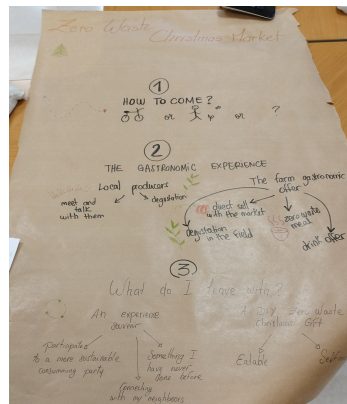 Zero Waste
Christmas Market
1
HOW TO COME?
or or ?
2
THE GASTRONOMIC EXPERIENCE
Local producers
meet and
talk
with them
degustation
The farm gastronomic
offer
direct sell
with the market
degustation
in the field
zero waste
meal
drink offer
3
What do I leave with?
An experience
Participated
to a more sustainable
consumming party
Something I
have never
done before
Connecting
with my neighbors
A DIY Zero Waste
Christmas Gift
Eatable